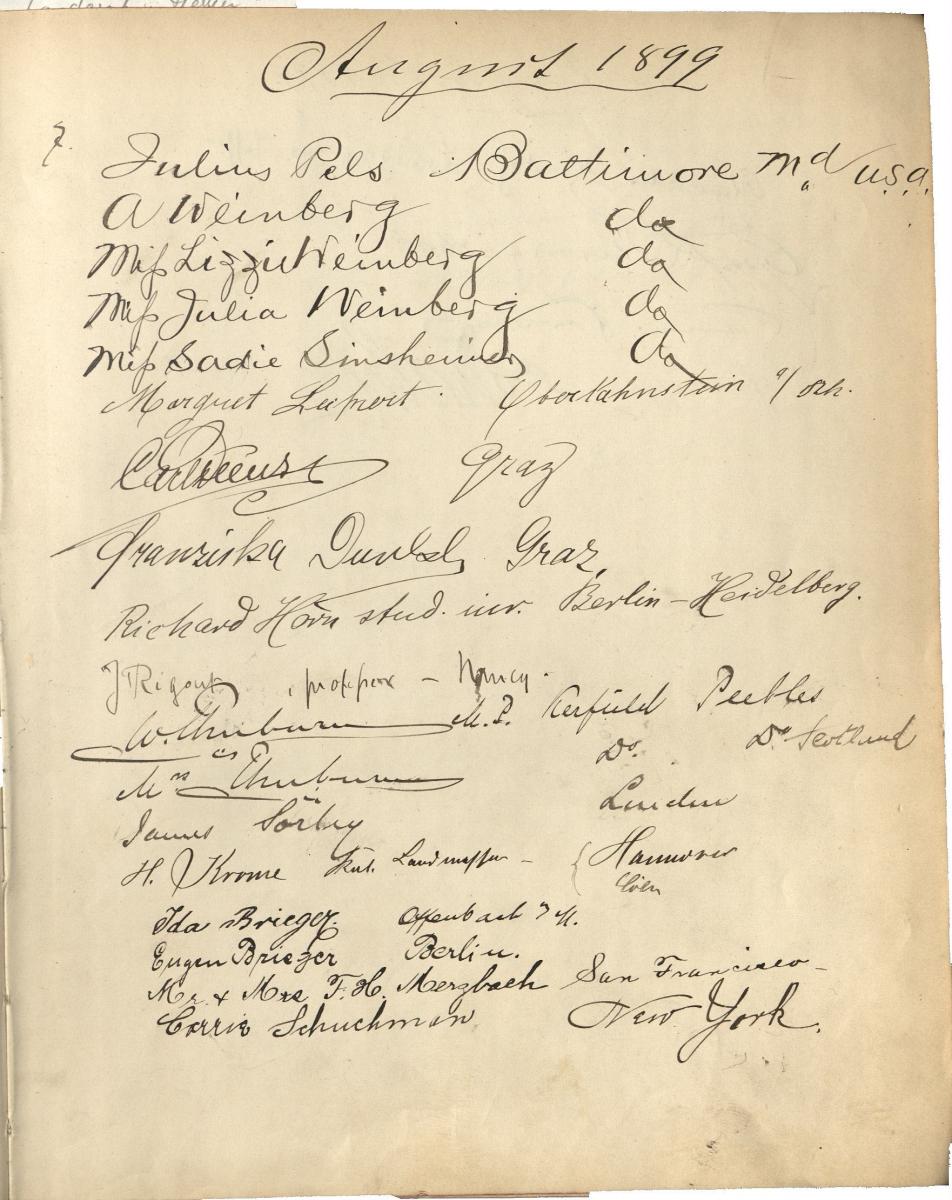 August 1899
7.
Julius Pels Baltimore Md U.S.A.
A Weinberg do
Miss Lizzie Weinberg do
Miss Julia Weinberg do
Miss Sadie Sinsheimer do
Margret Oberlahnstein a/ Rh.
Graz
Franziska Graz
Richard Horn stud. iur. Berlin – Heidelberg.
J Rigout, professor – Nancy.
W. Thuburn M.P. Kerfield Peebles
Mrs Thuburn Do. Do Scotland
James Sörby London
H. Krome Landmesser – Hannover
Ida Brieger Offenbach a/M.
Eugen Brieger Berlin.
Mr. & Mrs F. H. Merzbach San Francisco –
Carrie Schuchman New York.